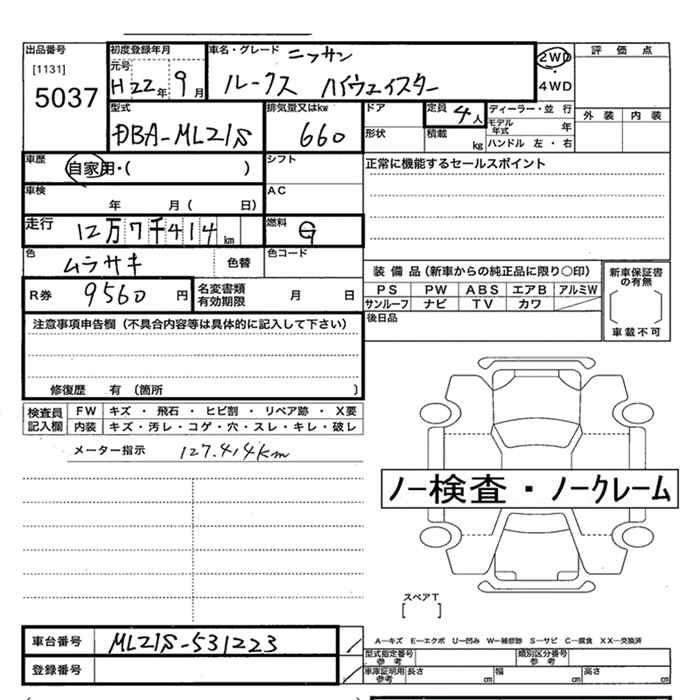 出品番号 初度登録年月 車名・グレード ニッサン 2WD 評価点
[1131] 元号
5037 H22年 9月 ルークス ハイウェイスター 4WD
型式 排気量又はkw ドア 定員 4人 ディーラー・並行 外装 内装
DBA-ML21S 660 形状 積載 kg モデル年式 年
ハンドル 左・右
車歴 自家用・( ) シフト 正常に機能するセールスポイント
車検 年 月( 日) AC
走行 12万7千414km 燃料 G
色 ムラサキ 色替 色コード
装備品(新車からの純正品に限り○印) 新車保証書の有無
R券 9560円 名変書類有効期限 月 日 PS PW ABS エアB アルミW
サンルーフ ナビ TV カワ 車載不可
注意事項申告欄(不具合内容等は具体的に記入して下さい) 後日品
修復歴 有 (箇所 )
検査員記入欄 FW キズ・飛石・ヒビ割・リペア跡・X要
内装 キズ・汚レ・コゲ・穴・スレ・キレ・破レ
メーター指示 127.414km
ノー検査・ノークレーム
スペアT
[ ]
車台番号 ML21S-531223 A―キズ E―エクボ U―凹み W―補修跡 S―サビ C―腐食 XX―交換済
型式指定番号 参考 類別区分番号 参考
登録番号 車庫証明用 参考 長さ cm 幅 cm 高さ cm